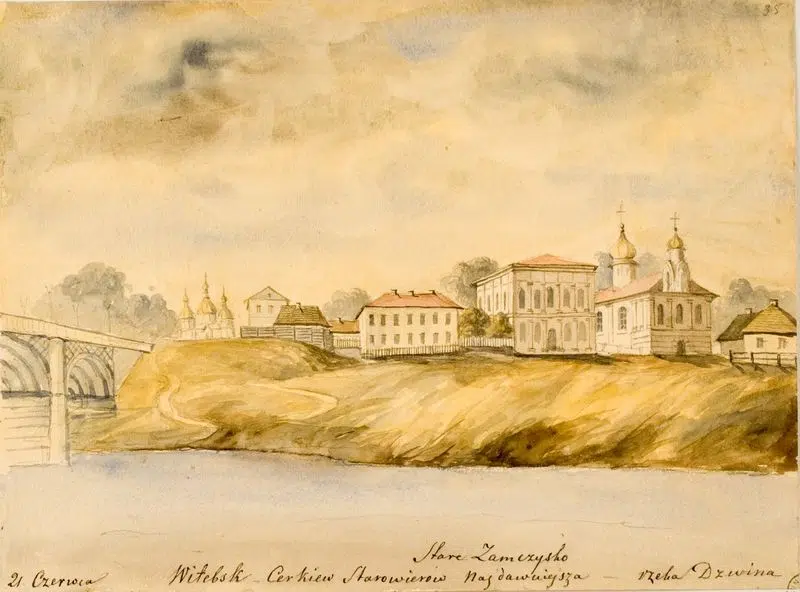 35
Stare Zamczysko
21 Czerwca Witebsk - Cerkiew Starowierów Najdawniejsza - rzeka Dzwina